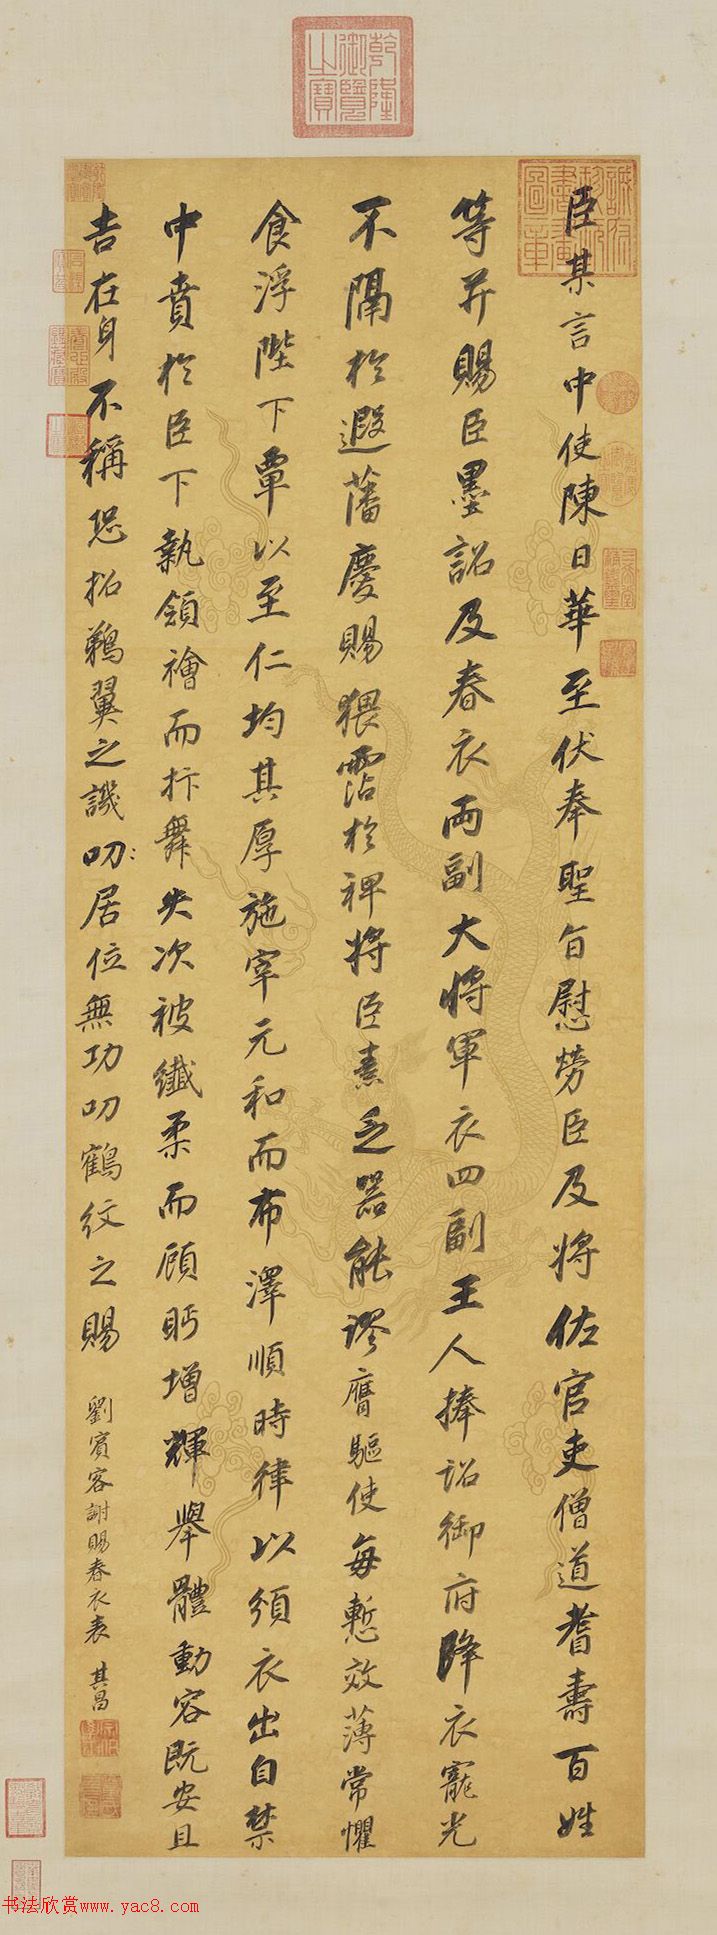 乾隆御覽之寶
臣某言中使陳日華至伏奉聖旨慰勞臣及將佐官吏僧道耆壽百姓
等并賜臣墨詔及春衣兩副大將軍衣四副王人捧詔御府降衣寵光
不隔於遐藩慶賜猥霑於裨將臣素乏器能謬膺驅使每慙效薄常懼
食浮陛下覃以至仁均其厚施宰元和而布澤順時律以頒衣出自禁
中賁於臣下執領襘而抃舞失次被纖柔而顧眄增輝舉體動容既安且
吉在身不稱恐招鵜翼之譏叨居位無功叨鶴紋之賜
劉賓客謝賜春衣表 其昌
书法欣赏www.yac8.com